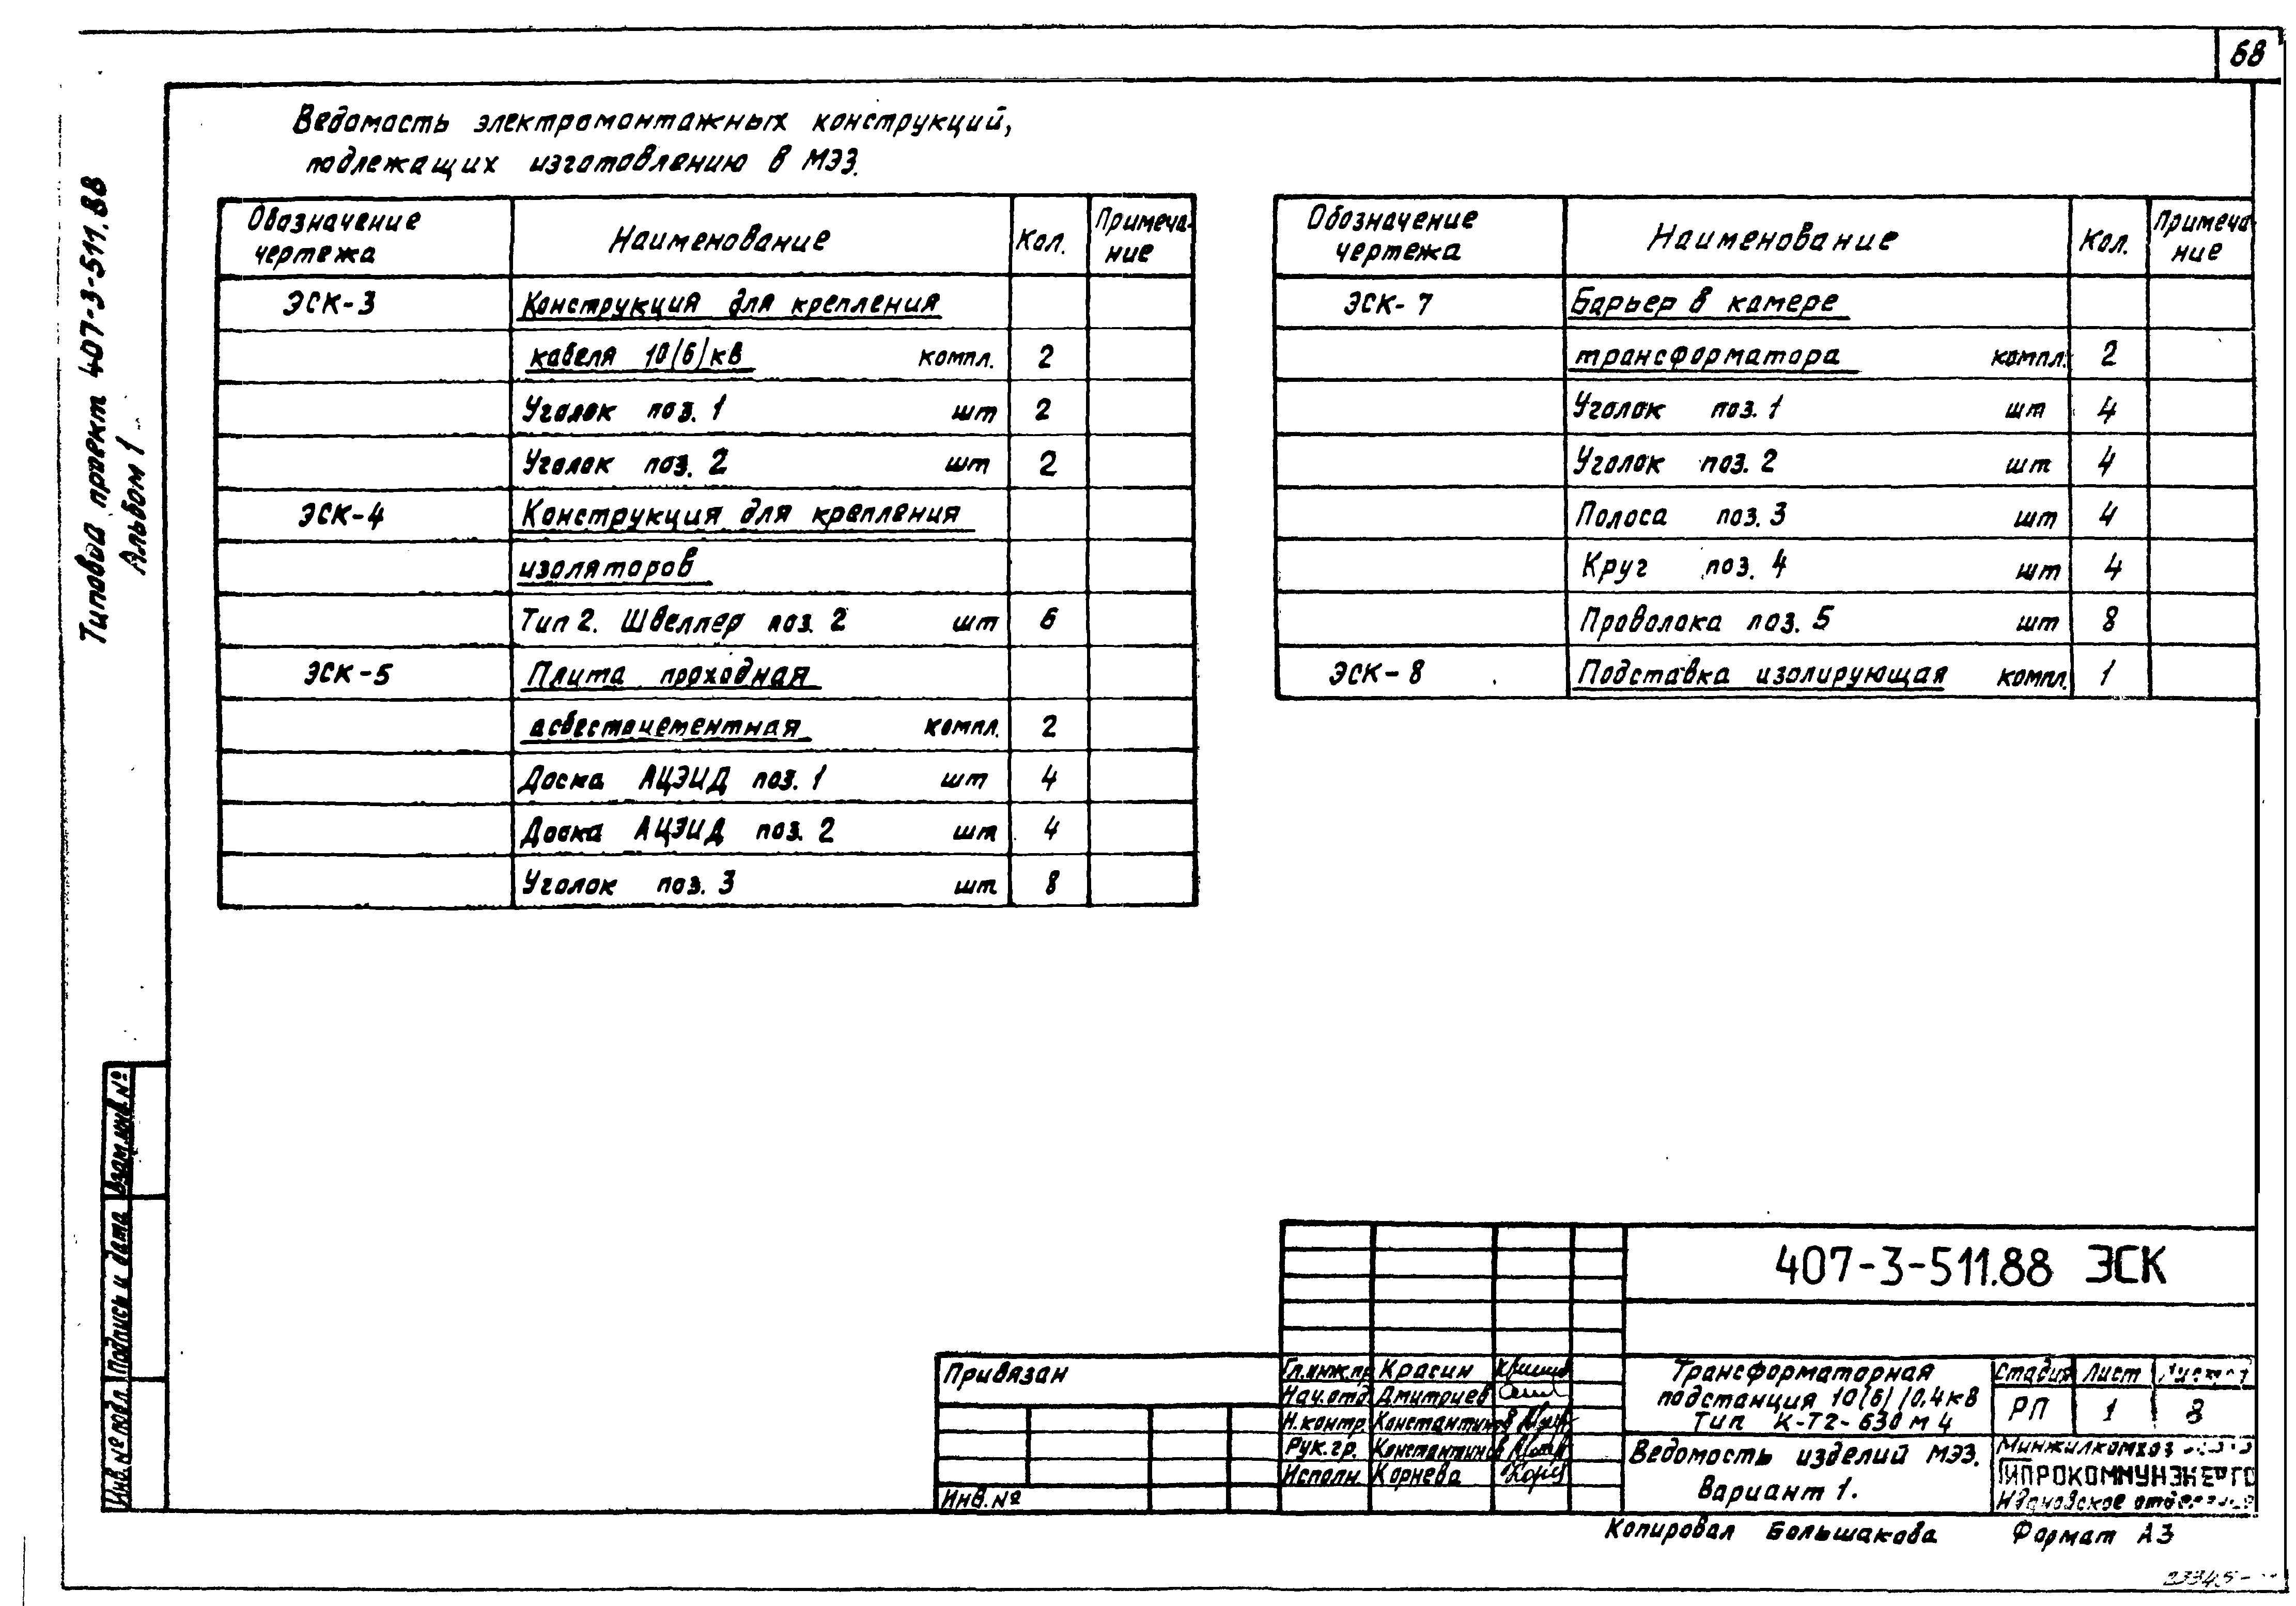 68
Ведомость электромонтажных конструкций,
подлежащих изготовлению в МЭЗ.
Типовой проект 407-3-511.88
Альбом 1
Обозначение чертежа Наименование Кол. Примеча-ние
ЭСК-3 Конструкция для крепления
кабеля 10(6)кв компл. 2
Уголок поз. 1 шт 2
Уголок поз. 2 шт 2
ЭСК-4 Конструкция для крепления
изоляторов
Тип 2. Швеллер поз. 2 шт 6
ЭСК-5 Плита проходная
асбестоцементная компл. 2
Доска АЦЭИД поз. 1 шт 4
Доска АЦЭИД поз. 2 шт 4
Уголок поз. 3 шт 8
Обозначение чертежа Наименование Кол. Примеча-ние
ЭСК-7 Барьер в камере
трансформатора компл. 2
Уголок поз. 1 шт 4
Уголок поз. 2 шт 4
Полоса поз. 3 шт 4
Круг поз. 4 шт 4
Проволока поз. 5 шт 8
ЭСК-8 Подставка изолирующая компл. 1
Взам.инв.№
Подпись и дата
Инв.№ подл.
407-3-511.88 ЭСК
Привязан
Инв.№
Гл.инж.пр Красин
Нач.отд Дмитриев
Н.контр. Константинов
Рук.гр. Константинов
Исполн. Корнева
Трансформаторная
подстанция 10(6)/0,4кв
Тип К-Т2-630 м 4
Стадия Лист Листов
РП 1 8
Ведомость изделий МЭЗ.
Вариант 1.
Минжилкомхоз
ГИПРОКОММУНЭНЕРГО
Ивановское отделение
Копировал Большакова Формат А3